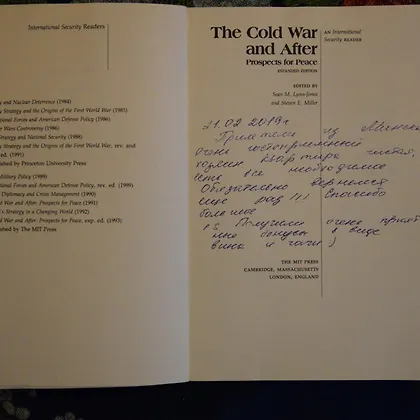 International Security Readers
y and Nuclear Deterrence (1984)
y Strategy and the Origins of the First World War (1985)
tional Forces and American Defense Policy (1986)
r Wars Controversy (1986)
Strategy and National Security (1988)
y Strategy and the Origins of the First World War, rev. and
ed. (1991)
shed by Princeton University Press
Military Policy (1989)
tional Forces and American Defense Policy, rev. ed. (1989)
Diplomacy and Crisis Management (1990)
d War and After: Prospects for Peace (1991)
's Strategy in a Changing World (1992)
d War and After: Prospects for Peace, exp. ed. (1993)
shed by The MIT Press
The Cold War
and After
Prospects for Peace
EXPANDED EDITION
AN International
Security READER
EDITED BY
Sean M. Lynn-Jones
and Steven E. Miller
21.02.2019г.
Приехали из Минска
очень гостеприимный
хозяин квартира чистая,
есть все необходимое
Обязательно вернемся
еще раз !!! Спасибо
большое
P.S. Получили очень прият
ные бонусы в виде
вина и чачи )
THE MIT PRESS
CAMBRIDGE, MASSACHUSETTS
LONDON, ENGLAND